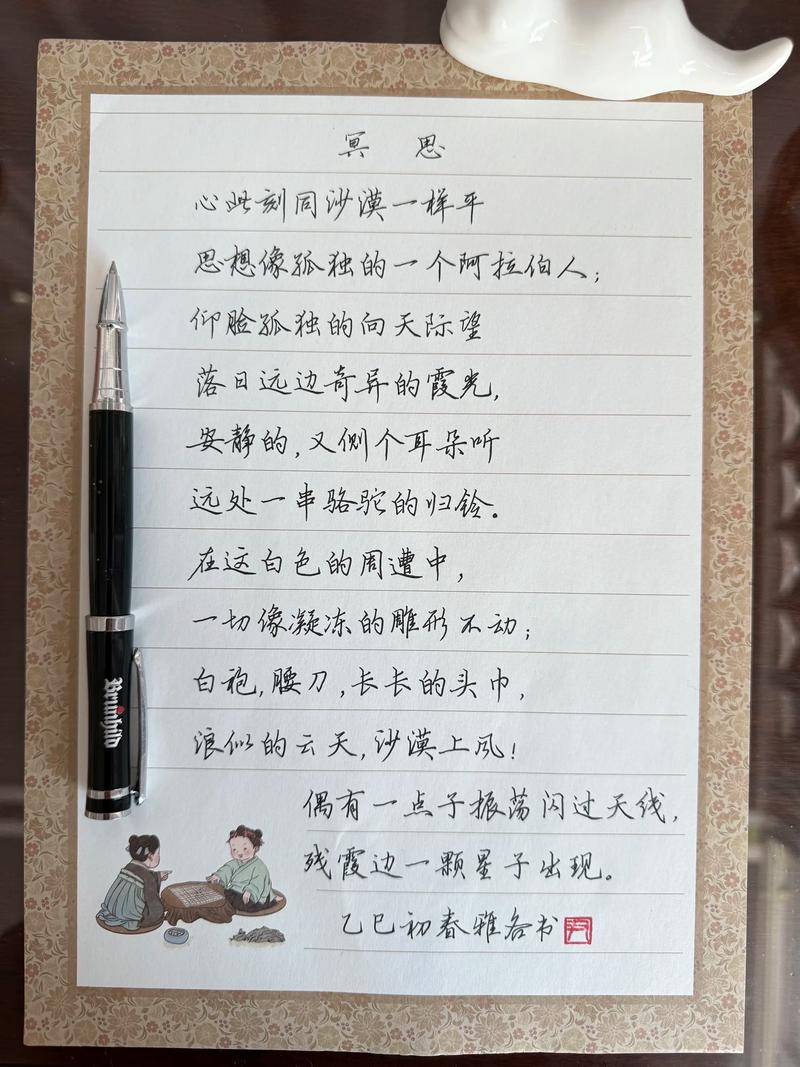 冥 思
心此刻同沙漠一样平
思想像孤独的一个阿拉伯人;
仰脸孤独的向天际望
落日远边奇异的霞光,
安静的,又侧个耳朵听
远处一串骆驼的归铃。
在这白色的周遭中,
一切像凝冻的雕形不动;
白袍,腰刀,长长的头巾,
浪似的云天,沙漠上风!
偶有一点子振荡闪过天线,
残霞边一颗星子出现。
乙巳初春雅各书